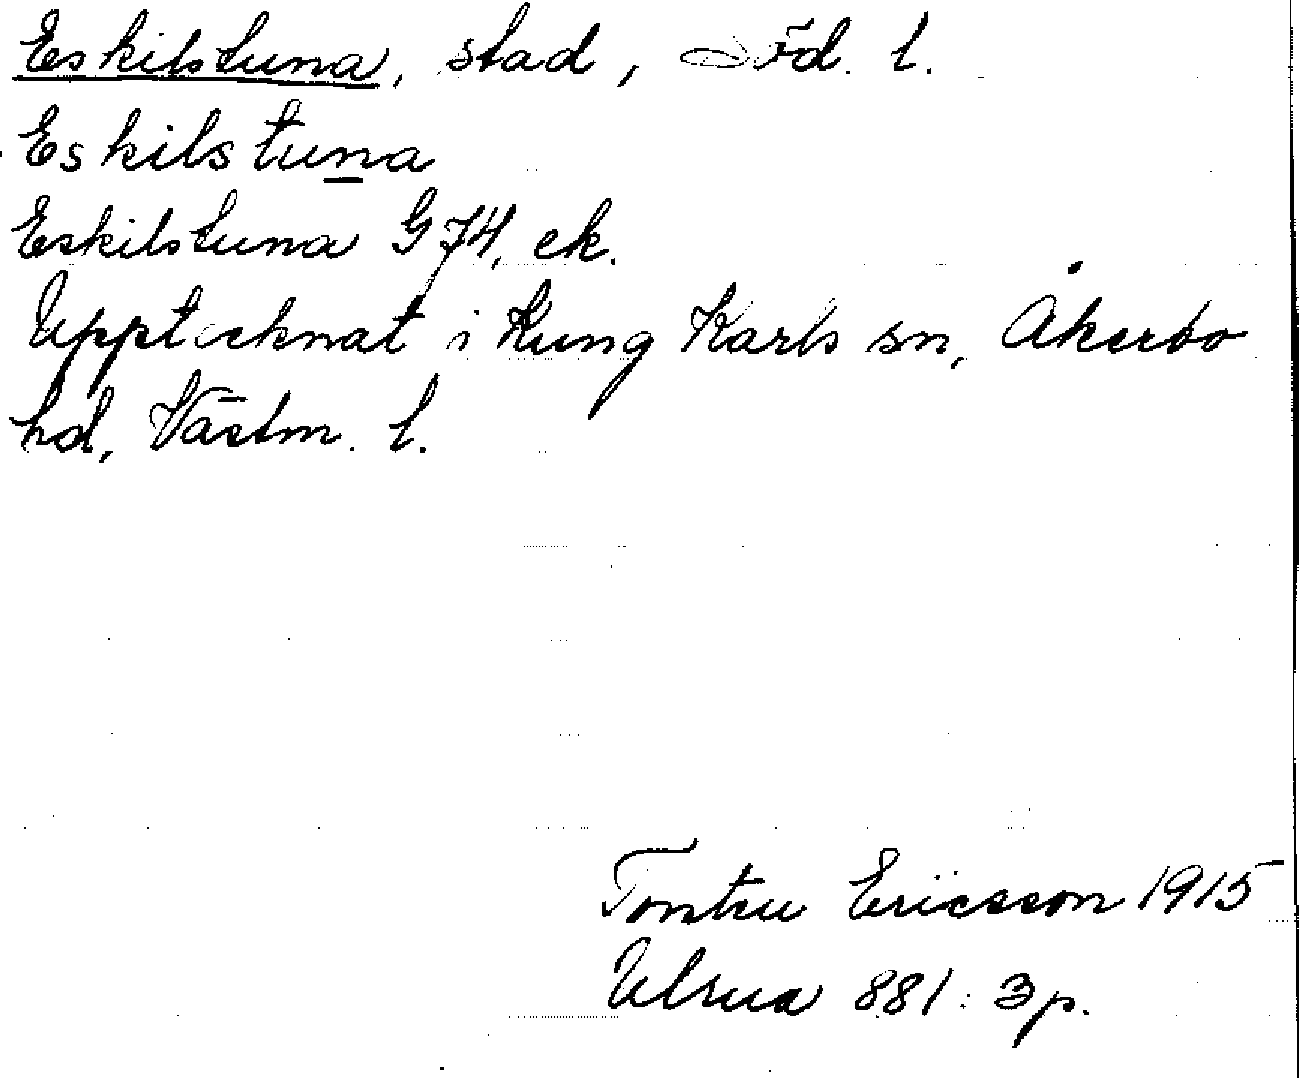 Eskilstuna, stad, Söd. l.
Eskilstuna
Eskilstuna G 74, ek.
Upptecknat i Kung Karls sn, Åkerbo
hd, Västm. l.
Ericsson 1915
Ulma 881: 3 p.